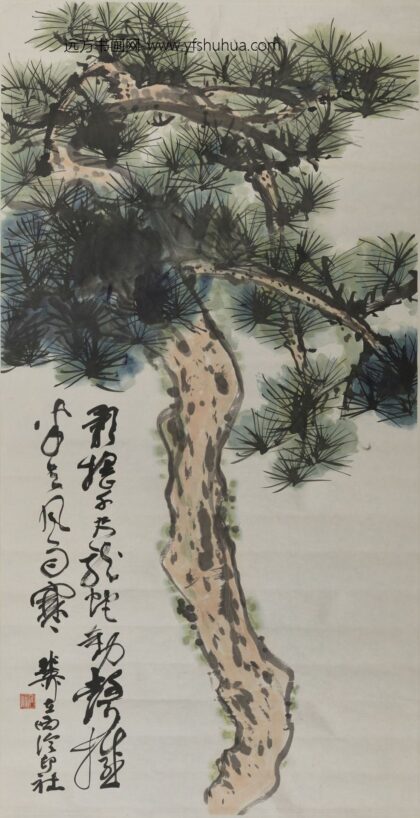 远方书画网 www.yfshuhua.com
影搖千尺龍蛇動聲撼
半天風雨寒
西泠印社